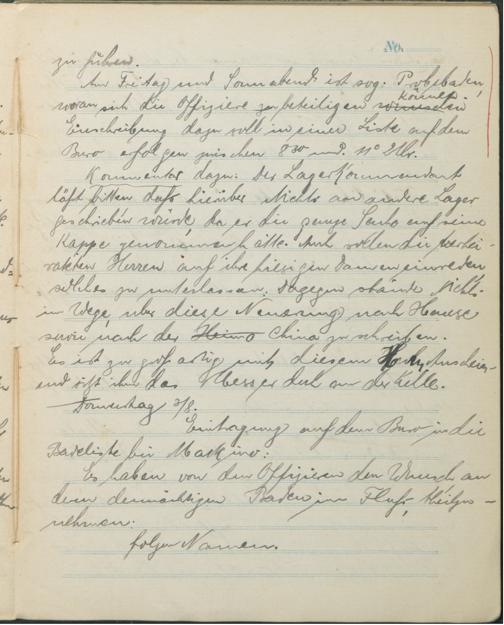 No.
zu führen.
Am Freitag und Sonnabend ist sog. Probebaden,
woran sich die Offiziere zu beteiligen wünschen können
Einschreibung dazu soll in einer Liste auf dem
Büro erfolgen zwischen 8³⁰ und 11⁰ Uhr.
Kommentar dazu: Der Lagerkommandant
läßt bitten dass hierüber Nichts an andere Lager
geschrieben würde, da er die ganze Sache auf seine
Kappe genommen hätte. Auch sollen die verhei-
rateten Herren auf ihre hiesigen Damen einreden
solches zu unterlassen. Dagegen stände Nichts
im Wege, über diese Neuerung nach Hause
sowie nach der Heima China zu schreiben.
Es ist zu großartig mit diesem Anschein-
end sitzt ihm das Messer dicht an der Kelle.
Donnerstag 2/8.
Eintragung auf dem Büro in die
Badeliste bei Maskino:
Es haben von den Offizieren den Wunsch an
dem demnächtigen Baden im Fluß, teilzu-
nehmen:
folgen Namen.